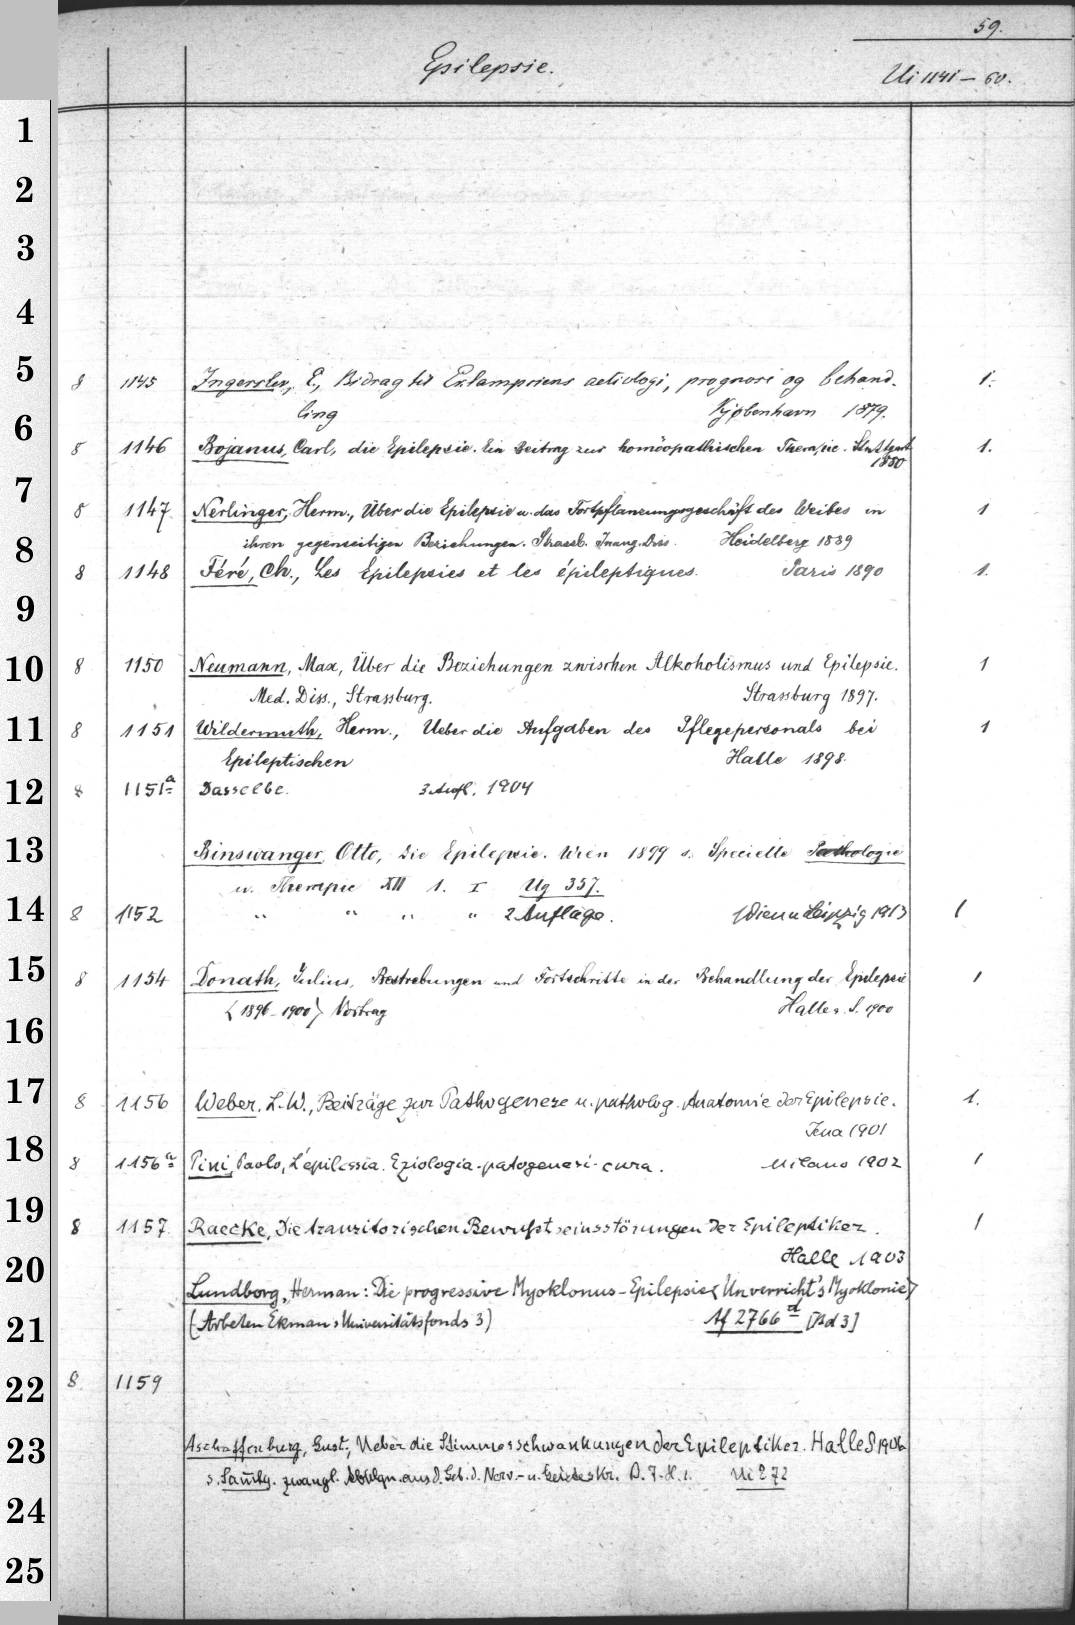 59.
Epilepsie.
Ui 1141 – 60.
1
2
3
4
5
8 1145 Ingerslev, E., Bidrag til Eclampsiens aetiologi, prognose og behand- 1.
6
ling Kjøbenhavn 1879.
8 1146 Bojanus, Carl, die Epilepsie. Ein Beitrag zur homöopathischen Therapie. Stuttgart 1.
1880
7
8 1147 Nerlinger, Herm., Über die Epilepsie u. das Fortpflanzungsgeschäft des Weibes in 1
8
ihren gegenseitigen Beziehungen. Strassb. Inaug. Diss. Heidelberg 1889
8 1148 Féré, Ch., Les Epilepsies et les épileptiques. Paris 1890 1.
9
10
8 1150 Neumann, Max, Über die Beziehungen zwischen Alkoholismus und Epilepsie. 1
Med. Diss., Strassburg. Strassburg 1897.
11
8 1151 Wildermuth, Herm., Ueber die Aufgaben des Pflegepersonals bei 1
Epileptischen Halle 1898.
12
8 1151a Dasselbe. 3 Aufl. 1904
13
Binswanger, Otto, Die Epilepsie. Wien 1899 s. Specielle Pathologie
u. Therapie XII 1. I Ug 357.
14
8 1152 " " " " 2 Auflage. Wien u Leipzig 1913 1
15
8 1154 Donath, Julius, Bestrebungen und Fortschritte in der Behandlung der Epilepsie 1
16
<1896–1900> Vortrag Halle a. S. 1900
17
8 1156 Weber, L. W., Beiträge zur Pathogenese u. patholog. Anatomie der Epilepsie. 1.
Jena 1901
18
8 1156a Pini, Paolo, L'épilessia. Eziologia-patogenesi-cura. Milano 1902 1
19
8 1157 Raecke, Die transitorischen Bewußtseinsstörungen der Epileptiker. 1
20
Halle 1903
Lundborg, Herman: Die progressive Myoklonus-Epilepsie <Unverricht's Myoklonie>
21
(Arbeten Ekman's Universitätsfonds 3) Af 2766d [Bd 3]
22
8 1159
23
Aschaffenburg, Gust., Ueber die Stimmungsschwankungen der Epileptiker. Halle S 1906
s. Samlg. zwangl. Abhlgn. aus d. Geb. d. Nerv.- u. Geisteskr. B. 7. H. 1. Ui 272
24
25